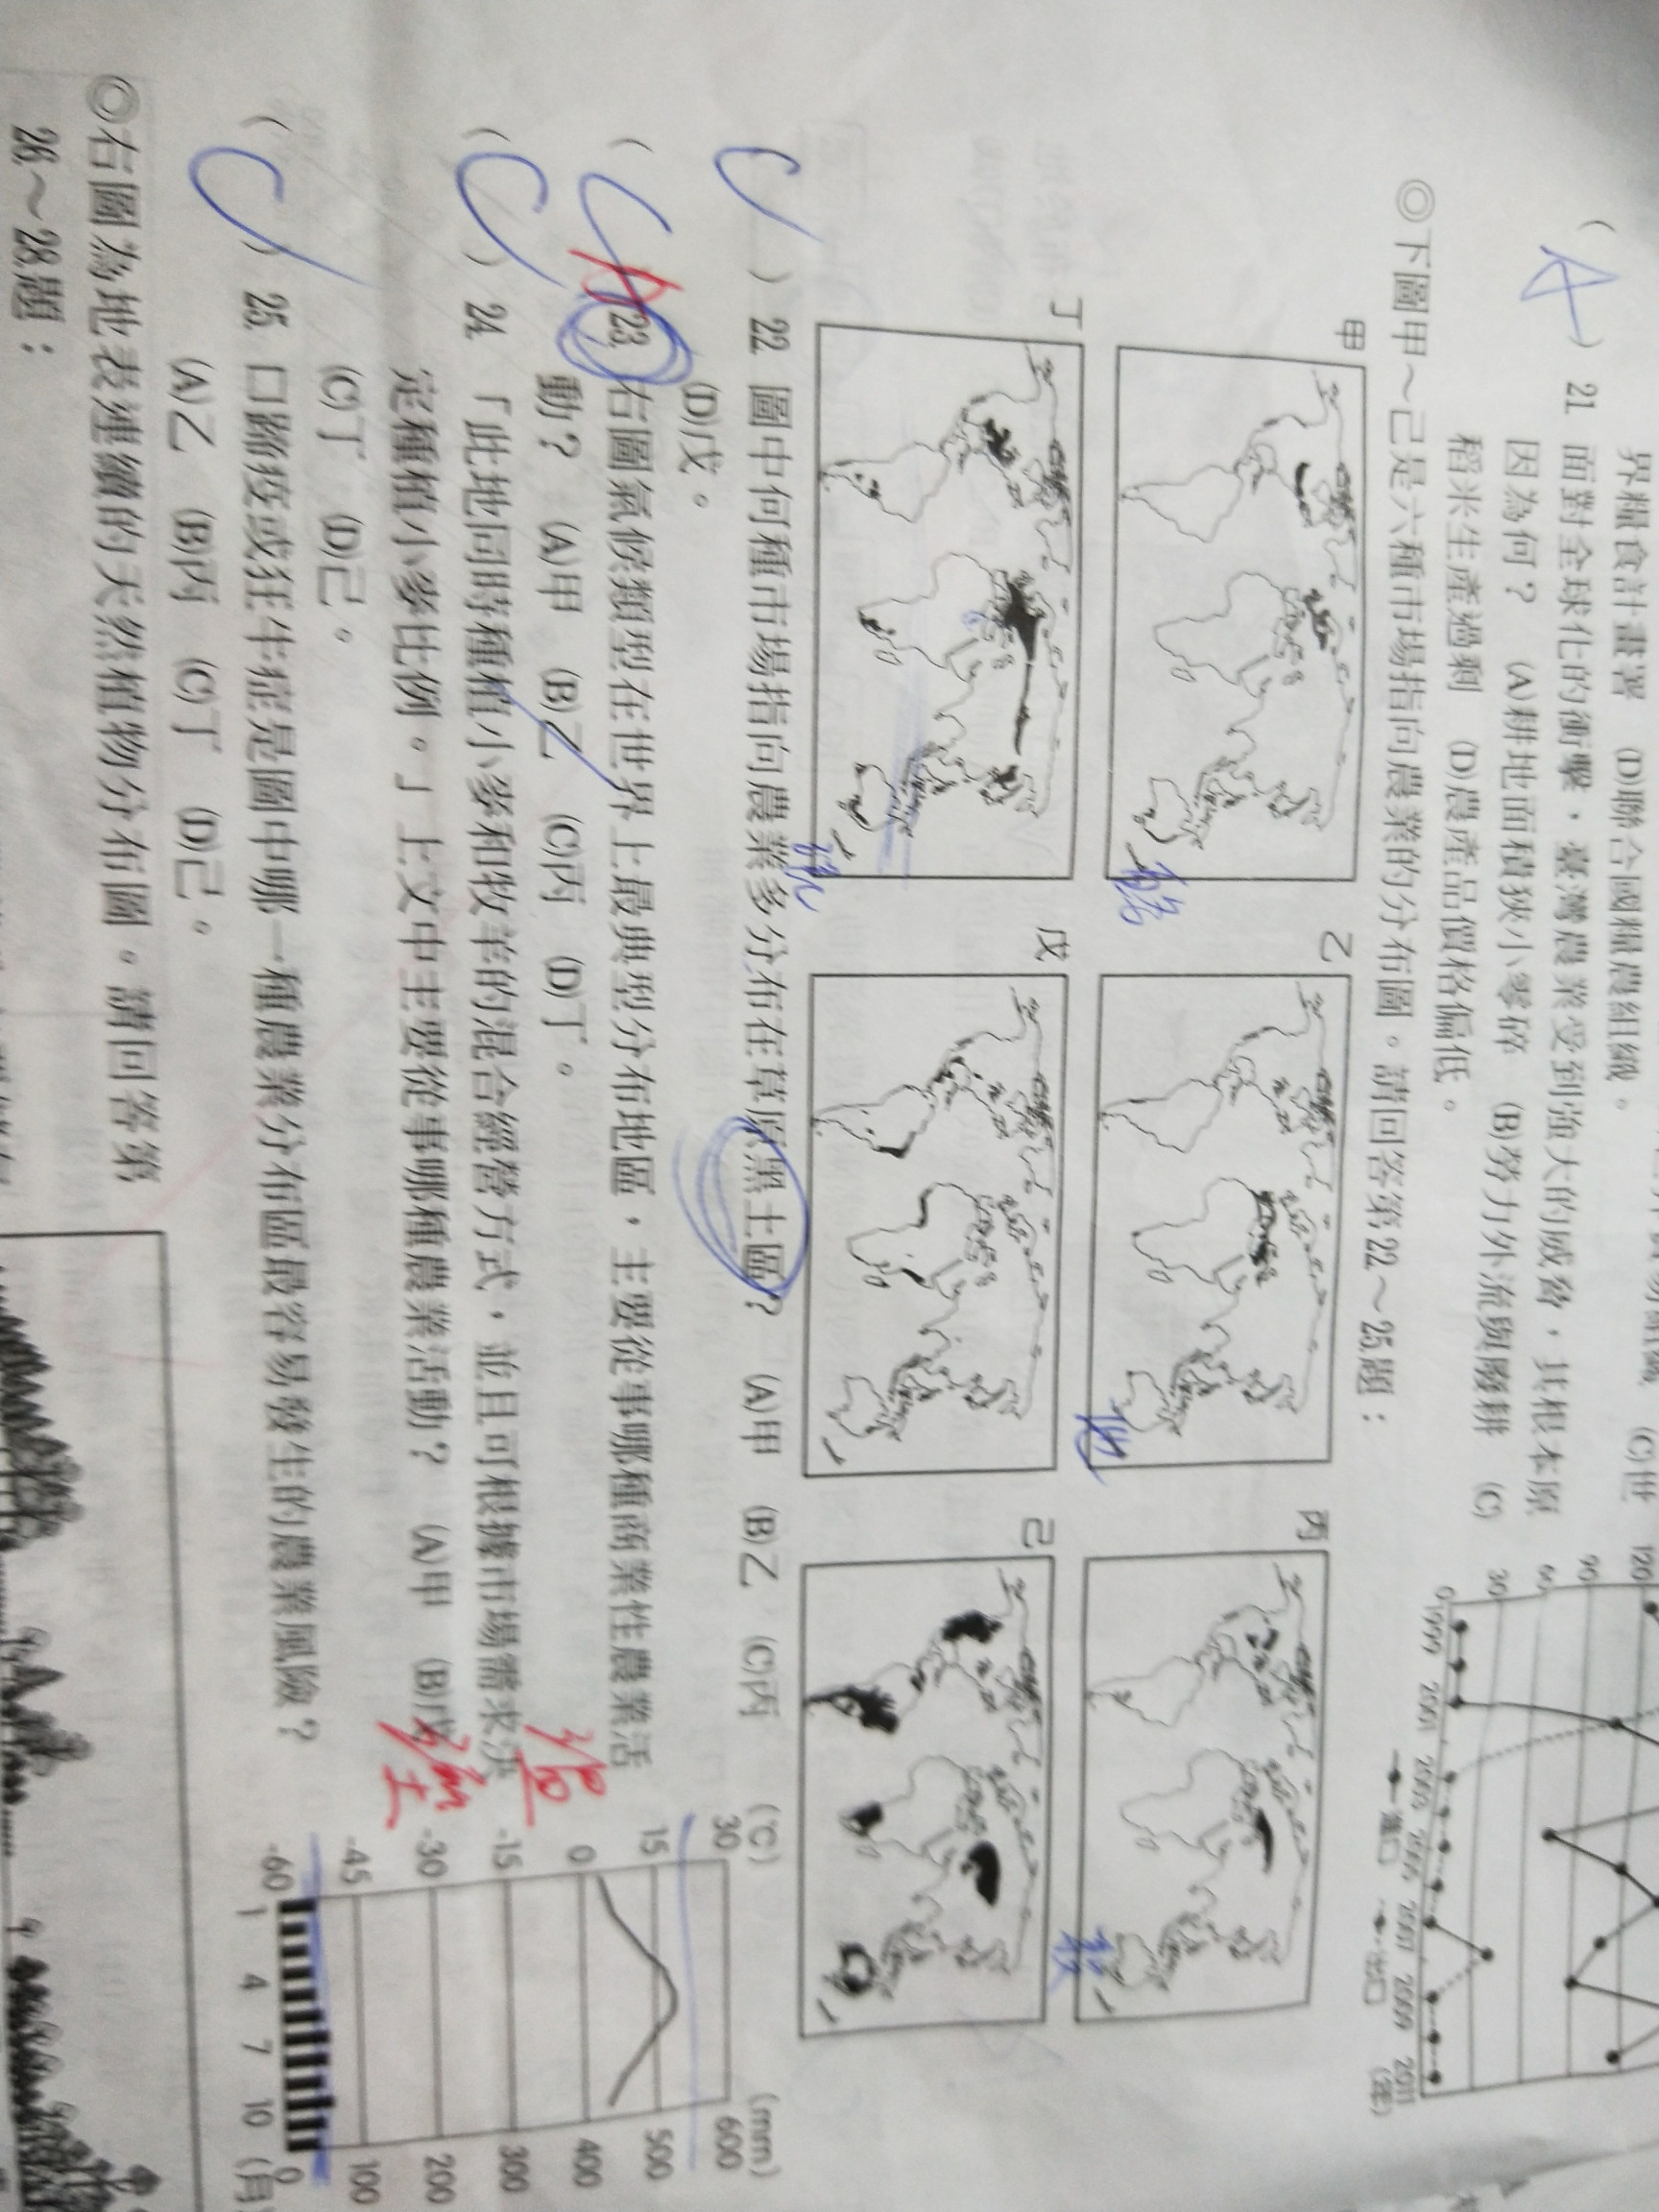 界糧食計畫署 (D)聯合國糧農組織。
( A ) 21. 面對全球化的衝擊，臺灣農業受到強大的威脅，其根本原
因為何？ (A)耕地面積狹小零碎 (B)勞力外流與廢耕 (C)
稻米生產過剩 (D)農產品價格偏低。
(C)世
120
90
60
30
0
1999 2001 2003 2005 2007 2009 2011 (年)
進口 出口
◎下圖甲～己是六種市場指向農業的分布圖。請回答第22～25題：
甲
乙
丙
丁
戊
己
( C ) 22. 圖中何種市場指向農業多分布在草原黑土區？ (A)甲 (B)乙 (C)丙
(D)戊。
( C A ) 23. 右圖氣候類型在世界上最典型分布地區，主要從事哪種商業性農業活
動？ (A)甲 (B)乙 (C)丙 (D)丁。
( C ) 24. 「此地同時種植小麥和牧羊的混合經營方式，並且可根據市場需求決
定種植小麥比例。」上文中主要從事哪種農業活動？ (A)甲 (B)戊
(C)丁 (D)己。
( C ) 25. 口蹄疫或狂牛症是圖中哪一種農業分布區最容易發生的農業風險？
(A)乙 (B)丙 (C)丁 (D)己。
溫
(℃)
30
15
0
-15
-30
-45
-60
(mm)
600
500
400
300
200
100
0
1 4 7 10 (月)
◎右圖為地表連續的天然植物分布圖。請回答第
26～28題：